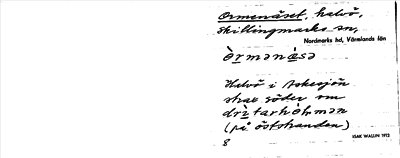 Ormenäset, halvö,
Skillingmarks sn,
Nordmarks hd, Värmlands län
òrmənä̀sə
Halvö i Askesjön
strax söder om
(på öststranden)
8
ISAK WALLIN 1972